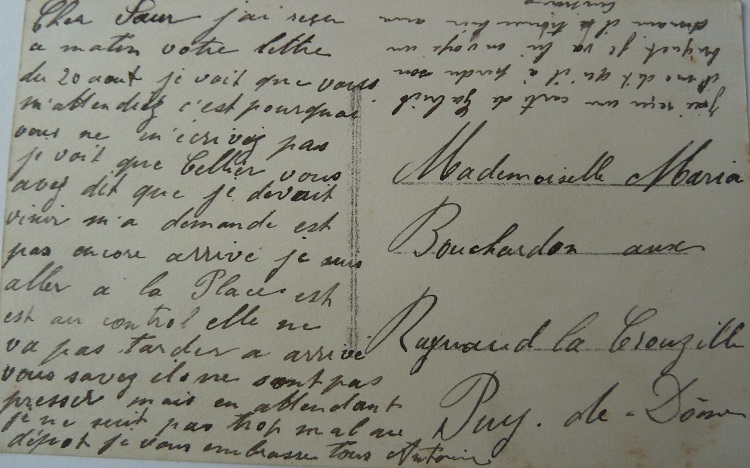 Cher Sœur j'ai reçu
a matin votre lettre
du 20 aout je voit que vous
m'attendiez c'est pourquoi
vous ne m'ecrivez pas
je voit que Cellier vous
avez dit que je devait
venir m'a demande est
pas encore arrivé je suis
aller a la Place est
est au control elle ne
va pas tarder a arrivé
vous savez ils ne sont pas
presser mais en attendant
je ne suit pas trop mal au
dépot je vous embrasse tous Antoine
j'ai reçu un carte de Gabriel
il me dit qu'il a perdu son
briquet je va lui envoye un
demain il a trouver bien
Mademoiselle Maria
Bouchardon aux
Raynaud la Crouzille
Puy-de-Dôme